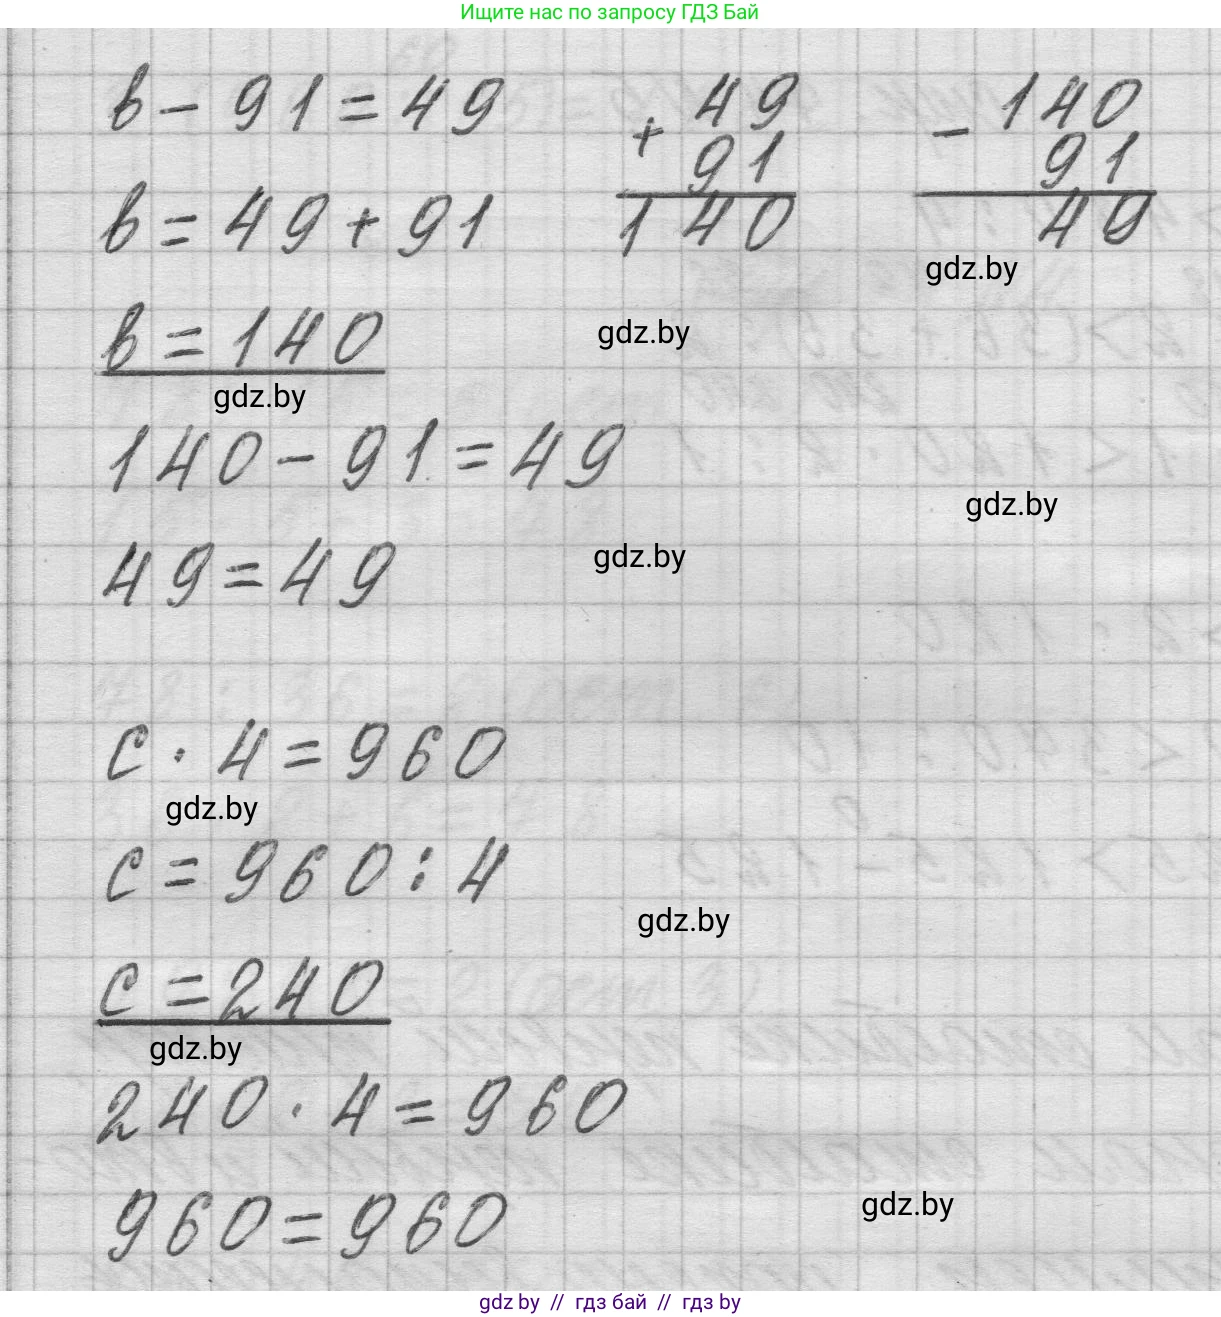 Ищите нас по запросу ГДЗ Бай
в - 91 = 49
в = 49 + 91
в = 140
140 - 91 = 49
49 = 49
+ 49
91
140
- 140
91
49
gdz.by
gdz.by
gdz.by
gdz.by
gdz.by
с · 4 = 960
gdz.by
с = 960 : 4
gdz.by
с = 240
gdz.by
240 · 4 = 960
960 = 960
gdz.by
gdz by // гдз бай // гдз by